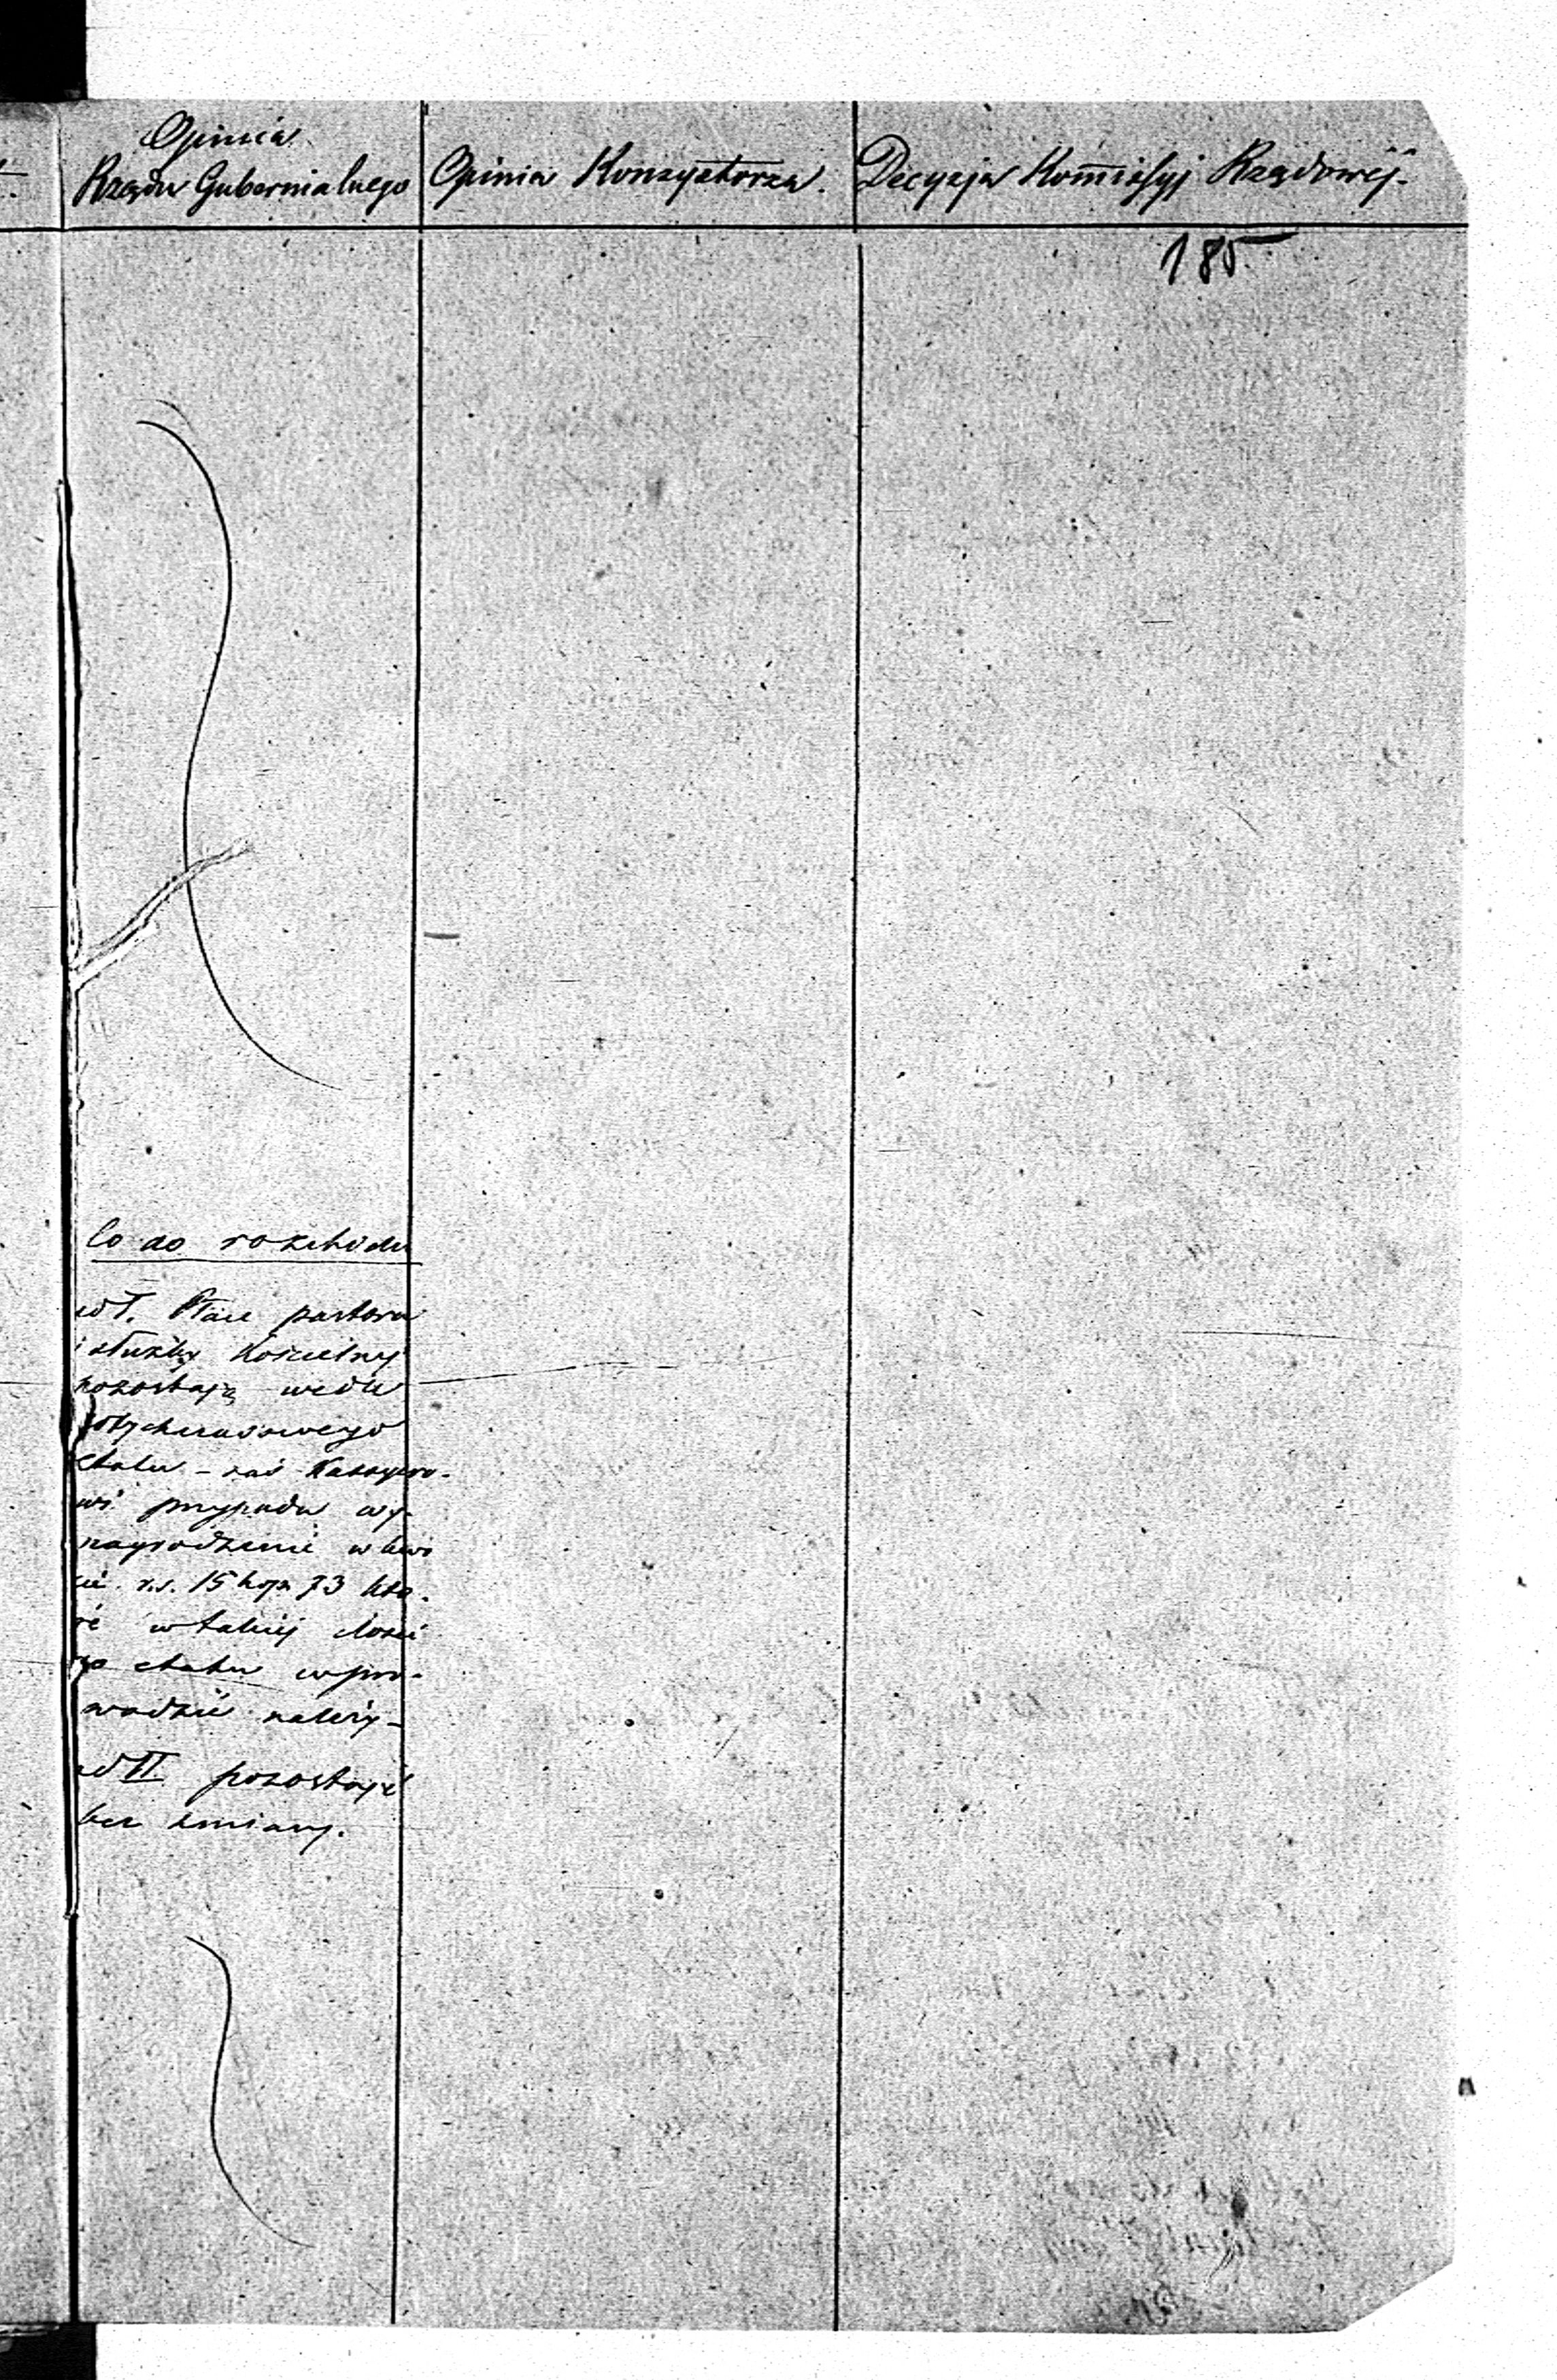 Opinia
Rządu Gubernialnego
Opinia Konsystorza.
Decyzja Kommissyj Rządowéj.
185
Co do rozchodu
ad I. Płace pastora
i służby kościelnéj
pozostają wedle
dotychczasowego
etatu – zaś Kassyero-
wi przypada wy-
nagrodzenie w kwo
cie r.s. 15 kop. 73 któ-
re w takiéj ilości
do etatu wpro-
wadzić należy –
ad II pozostaje
bez zmiany.